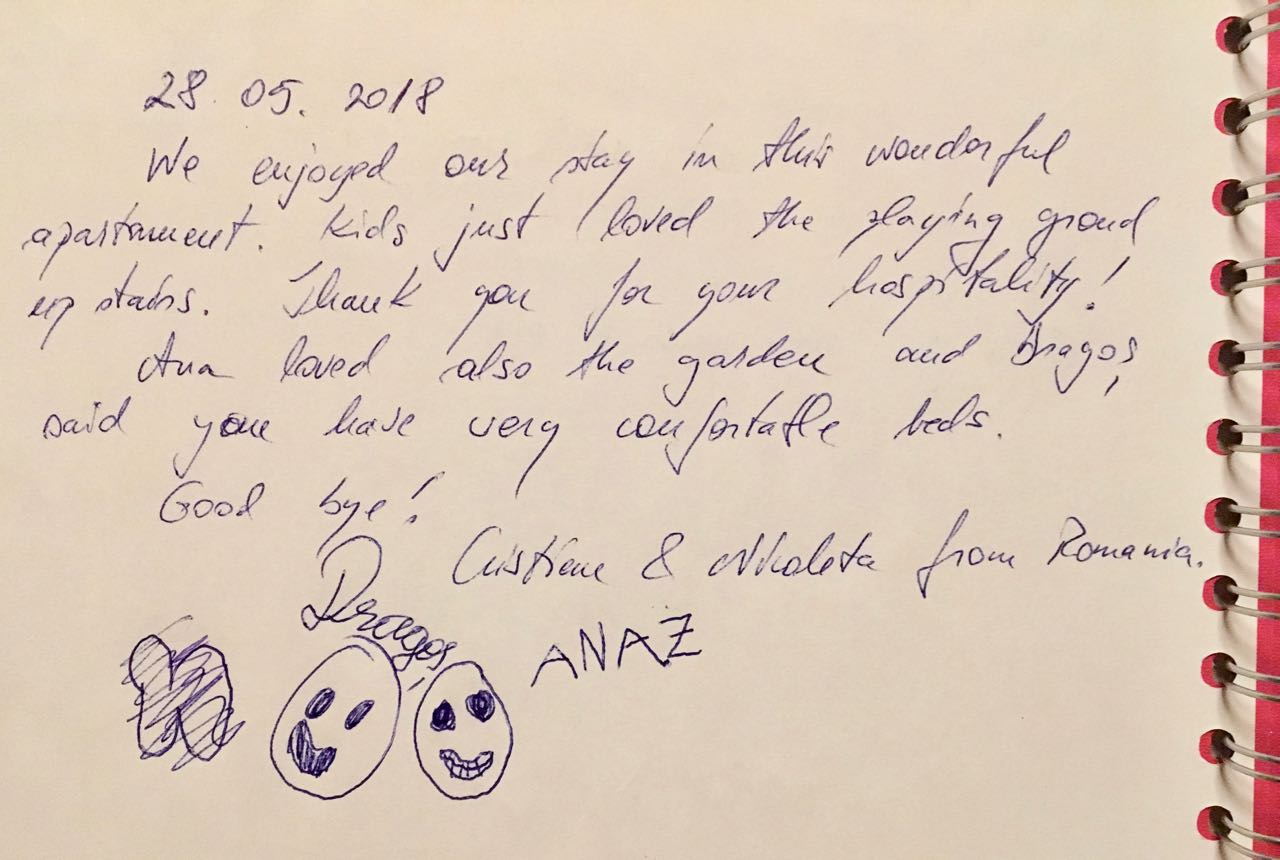 28. 05. 2018
We enjoyed our stay in this wonderful
apartament. Kids just loved the playing groud
up stairs. Thank you for your hospitality!
Ana loved also the garden and Dragoș
said you have very confortable beds.
Good bye!
Cristian & Nicoleta from Romania.
Dragoș
ANAZ